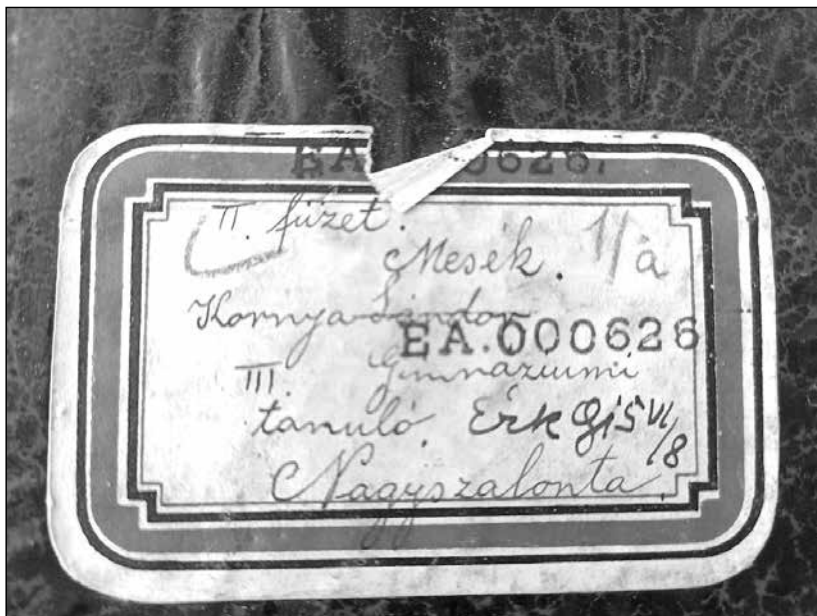 EA.000626.
II. füzet.
Mesék. 1/a
Kornya Sándor
EA.000626
III. Gimnáziumi
tanuló. Érk 915 VI/8
Nagyszalonta.